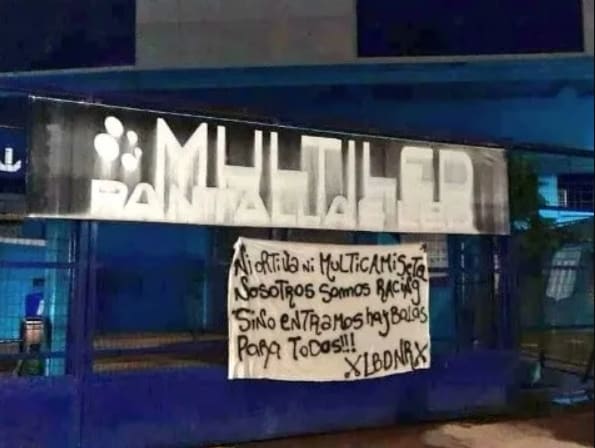 MULTILED
PANTALLAS LED
Ni ORTiVA Ni MULTICAMiSETA
NOSOTROS SOMOS RACiNg
SiNO ENTRAMOS hAy BALAS
PARA TODOS!!!
XLBDNRX